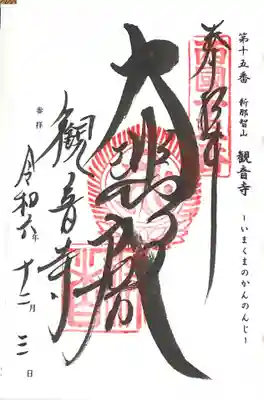 第十五番 新那智山 観音寺
~いまくまのかんのんじ~
奉拝
大悲殿
観音寺
参拝
令和六年 十二月 三日